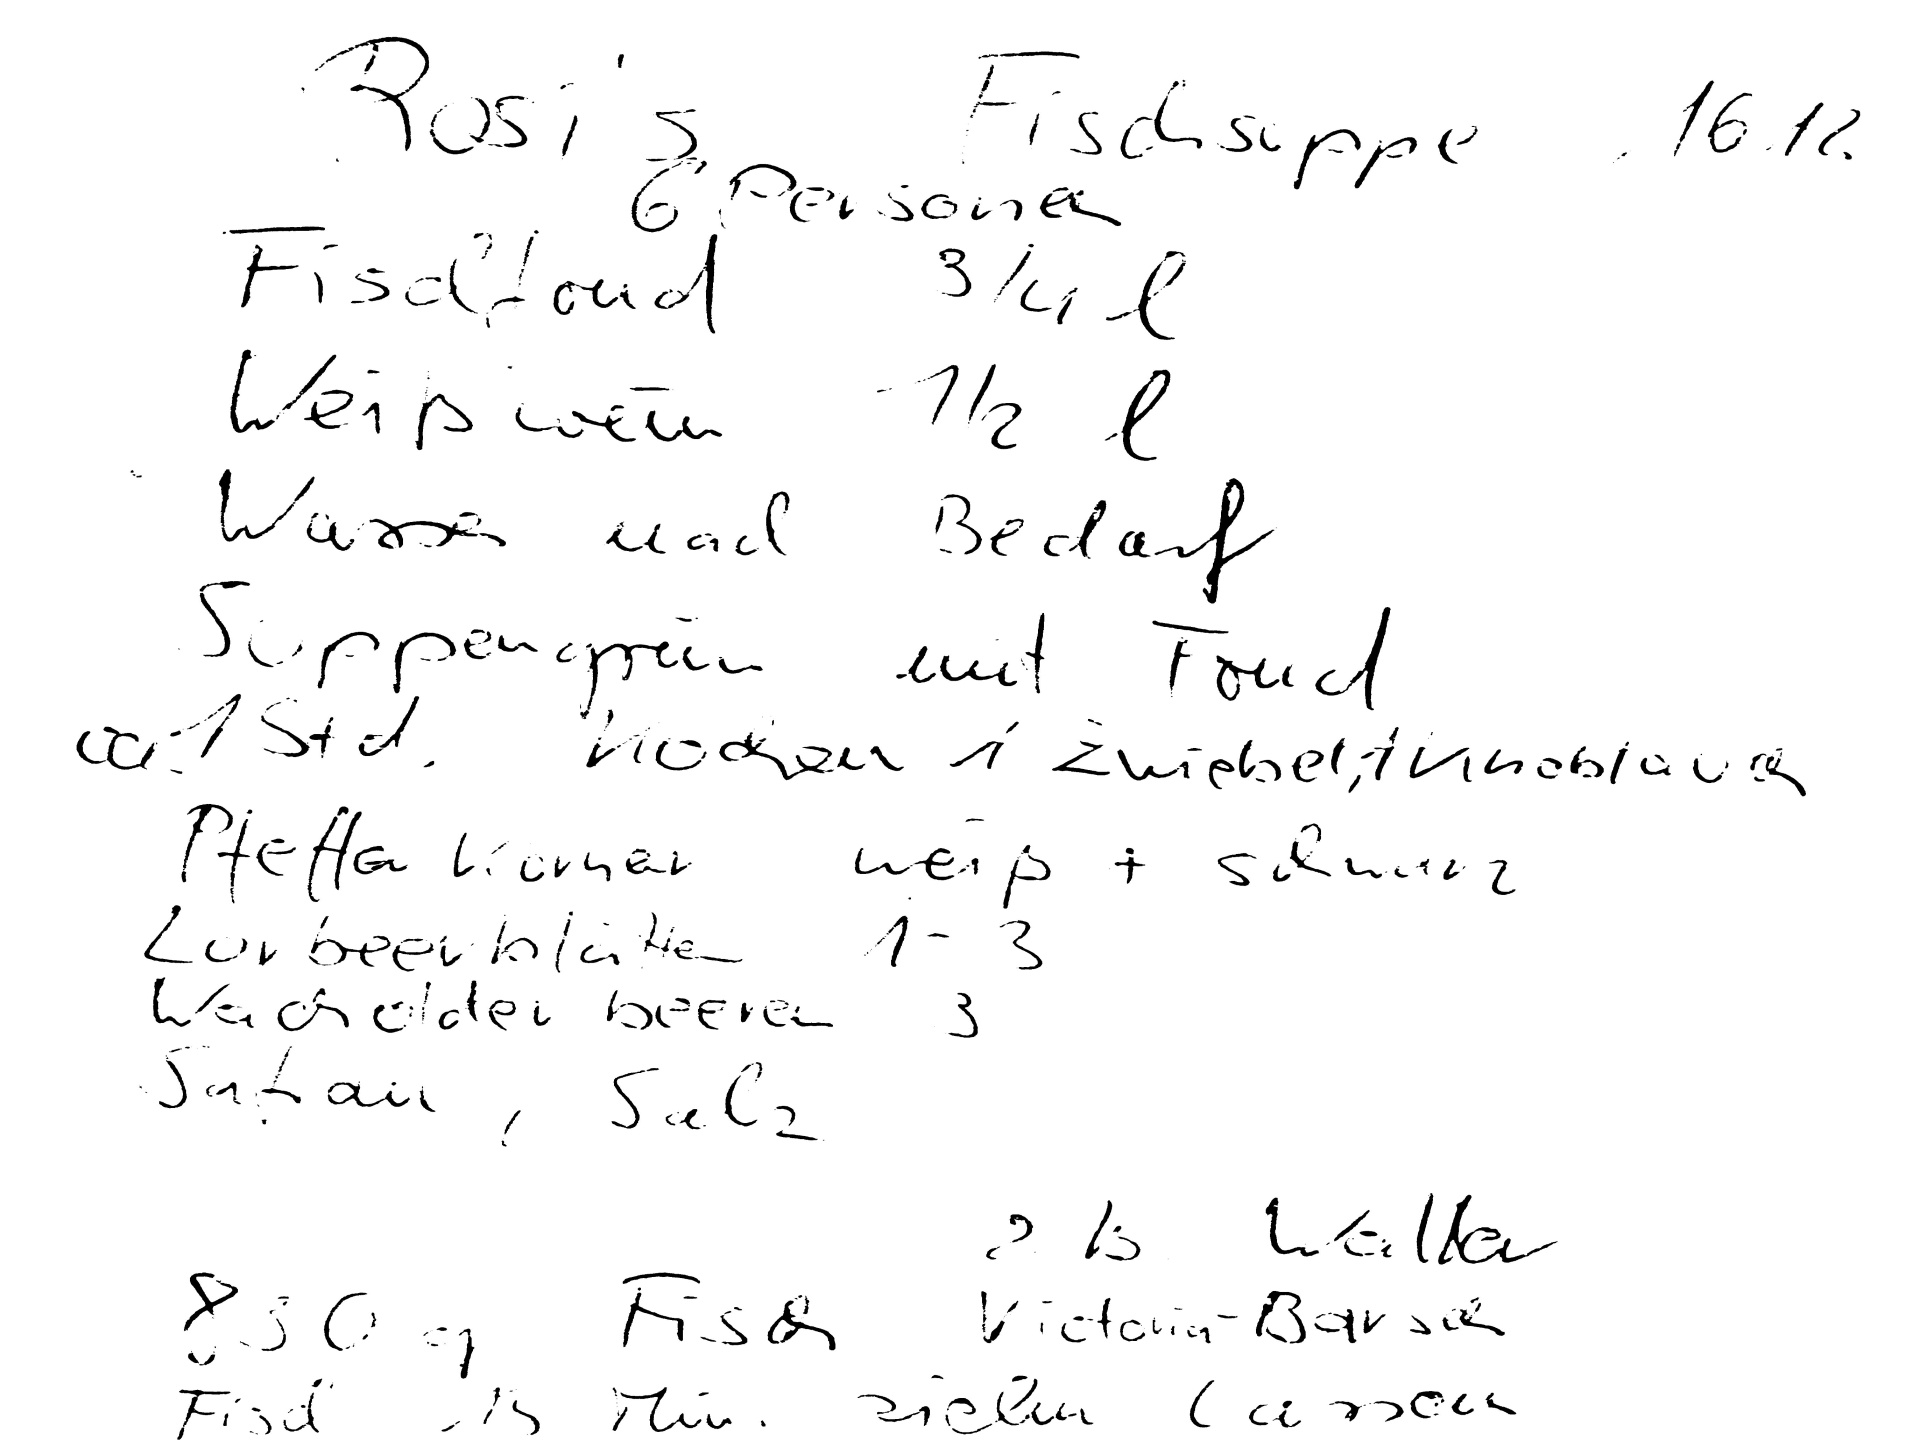 Rosi's Fischsuppe 16.12.
6 Personen
Fischfond 3/4 l
Weißwein 1/2 l
Wasser nach Bedarf
Suppengrün mit Fond
ca. 1 Std. kochen 1 Zwiebel, 1 Knoblauch
Pfefferkörner weiß + schwarz
Lorbeerblätter 1-3
Wacholderbeeren 3
Safran, Salz
z.B. Waller
850 g Fisch Victoria-Barsch
Fisch 15 Min. ziehen lassen